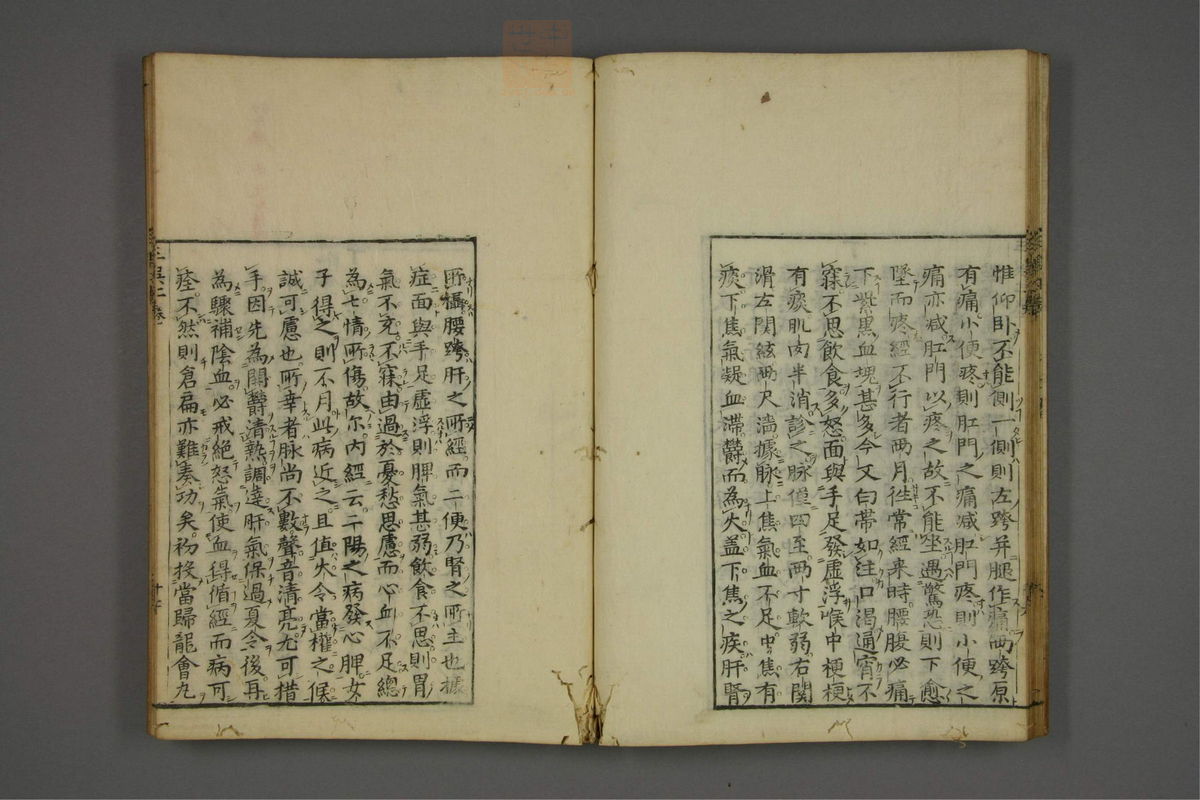 惟仰卧不能側一側則左跨并腿作痛両跨原
有痛小便疼則肛門之痛减肛門疼則小便之
痛亦减肛門以疼之故不能坐遇驚恐則下愈
墜而疼經不行者两月徃常經来時腰腹必痛
下紫黒血塊甚多今又白帯如注口渴通宵不
寐不思飲食多怒面與手足發虚浮喉中梗梗
有痰肌肉半消診之脉僅四至两寸軟弱右関
滑左関絃两尺濇據脉上焦氣血不足中焦有
痰下焦氣凝血滞欝而為火盖下焦之疾肝腎
所攝腰跨肝之所經而二便乃腎之所主也據
症面與手足虚浮則脾氣甚弱飲食不思則胃
氣不充不寐由過於憂愁思慮而心血不足總
為七情所傷故尔内經云二陽之病發心脾女
子得之則不月此病近之且值火令當權之候
誠可慮也所幸者脉尚不數聲音清亮尤可措
手因先為開欝清熱調達肝氣保過夏令後再
為驟補隂血必戒絶怒氣使血得循經而病可
痊不然則倉扁亦難奏功矣初投當歸龍會九